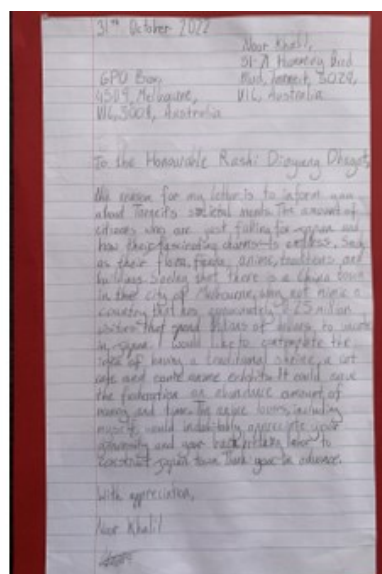 31st October 2022
Noor Khalil,
GPO Box
4509, Melbourne,
VIC, 3001, Australia
Tarneit, 3029,
VIC, Australia
To the Honourable
The reason for my letter is to inform you
about Tarneit's societal needs. The amount of
citizens who are just falling for Japan and
how their fascinating is endless. Such
as their flora, anime, traditions, and
buildings. Seeing that there is a China town
in the city of Melbourne, why not mimic a
country that has million
visitors that spend billions of dollars, to unwind
in Japan. I would like to contemplate the
idea of having a traditional shrine, a cat
cafe and some anime exhibits. It could give
the federation an amount of
money and time. The anime lovers, including
myself, would appreciate your
generosity and your labor to
construct Japan town. Thank you in advance.
With appreciation,
Noor Khalil